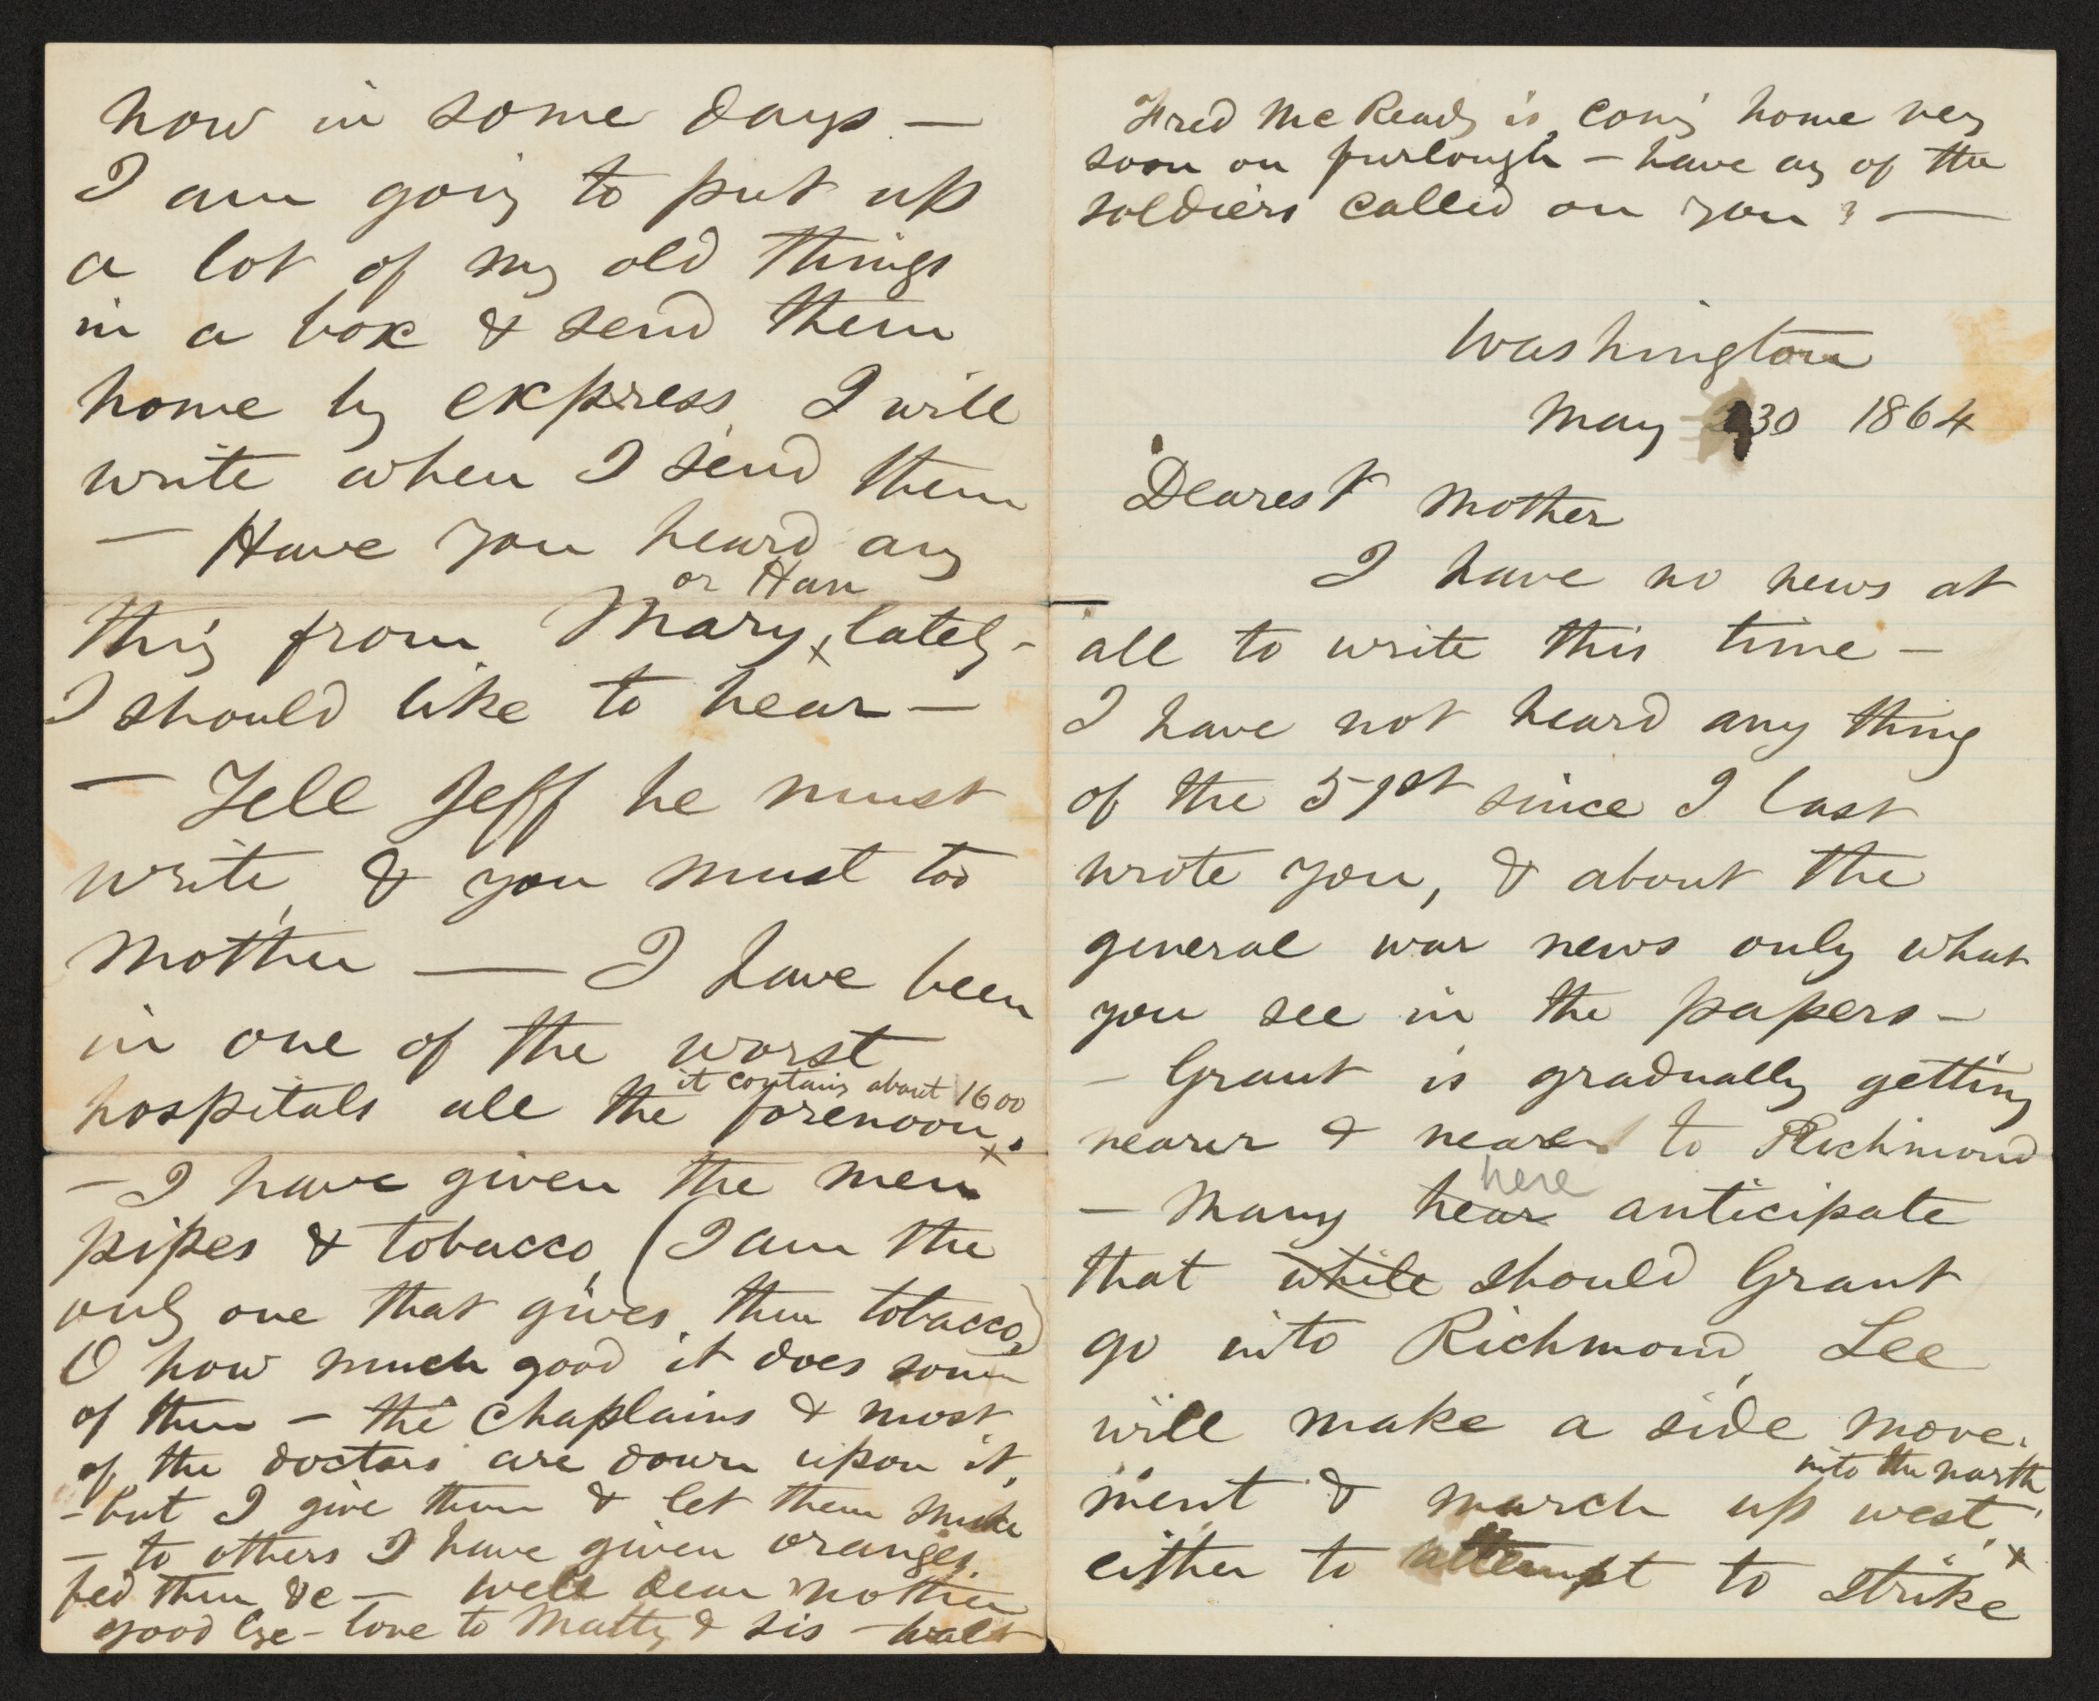 now in some days —
I am going to put up
a lot of my old things
in a box & send them
home by express, I will
write when I send them
— Have you heard any
or Han
thing from Mary x lately -
I should like to hear —
— Tell Jeff he must
write, & you must too
mother — I have been
in one of the worst
it contains about 1600
hospitals all the forenoon x.
— I have given the men
pipes & tobacco, (I am the
only one that gives them tobacco)
O how much good it does some
of them — the chaplains & most
of the doctors are down upon it,
— but I give them & let them smoke
— to others I have given oranges,
fed them &c — well dear mother
good bye — love to Matty & sis — Walt
Fred McReady is coming home very
soon on furlough — have any of the
soldiers called on you? —
Washington
May 30 1864
Dearest mother
I have no news at
all to write this time —
I have not heard any thing
of the 51st since I last
wrote you, & about the
general war news only what
you see in the papers —
— Grant is gradually getting
nearer & nearer to Richmond
here
— Many hear anticipate
that while should Grant
go into Richmond, Lee
will make a side move-
into the north
ment & march up west, x
either to attempt to strike